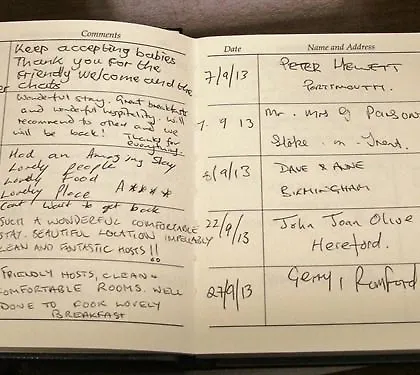 Comments
Keep accepting babies
Thank you for the
friendly welcome and the
chats
Wonderful stay. Great breakfasts
and wonderful hospitality. Will
recommend to others and we
will be back! Thanks for
everything.
Had an Amazing Stay
Lovely people
Lovely Food
Lovely Place A****
Cant Want to get back
SUCH A WONDERFUL COMFORTABLE
STAY. BEAUTIFUL LOCATION IMPECCABLY
CLEAN AND FANTASTIC HOSTS!!
FRIENDLY HOSTS, CLEAN &
COMFORTABLE ROOMS. WELL
DONE TO COOK LOVELY
BREAKFAST
Date Name and Address
7/9/13 PETER HEWETT
PORTSMOUTH.
7. 9 13 Mr. Mrs G Parsons
Stoke-on-Trent.
8/9/13 DAVE & ANNE
BIRMINGHAM
22/9/13 John Joan Olive
Hereford.
27/9/13 Gerry, Romford